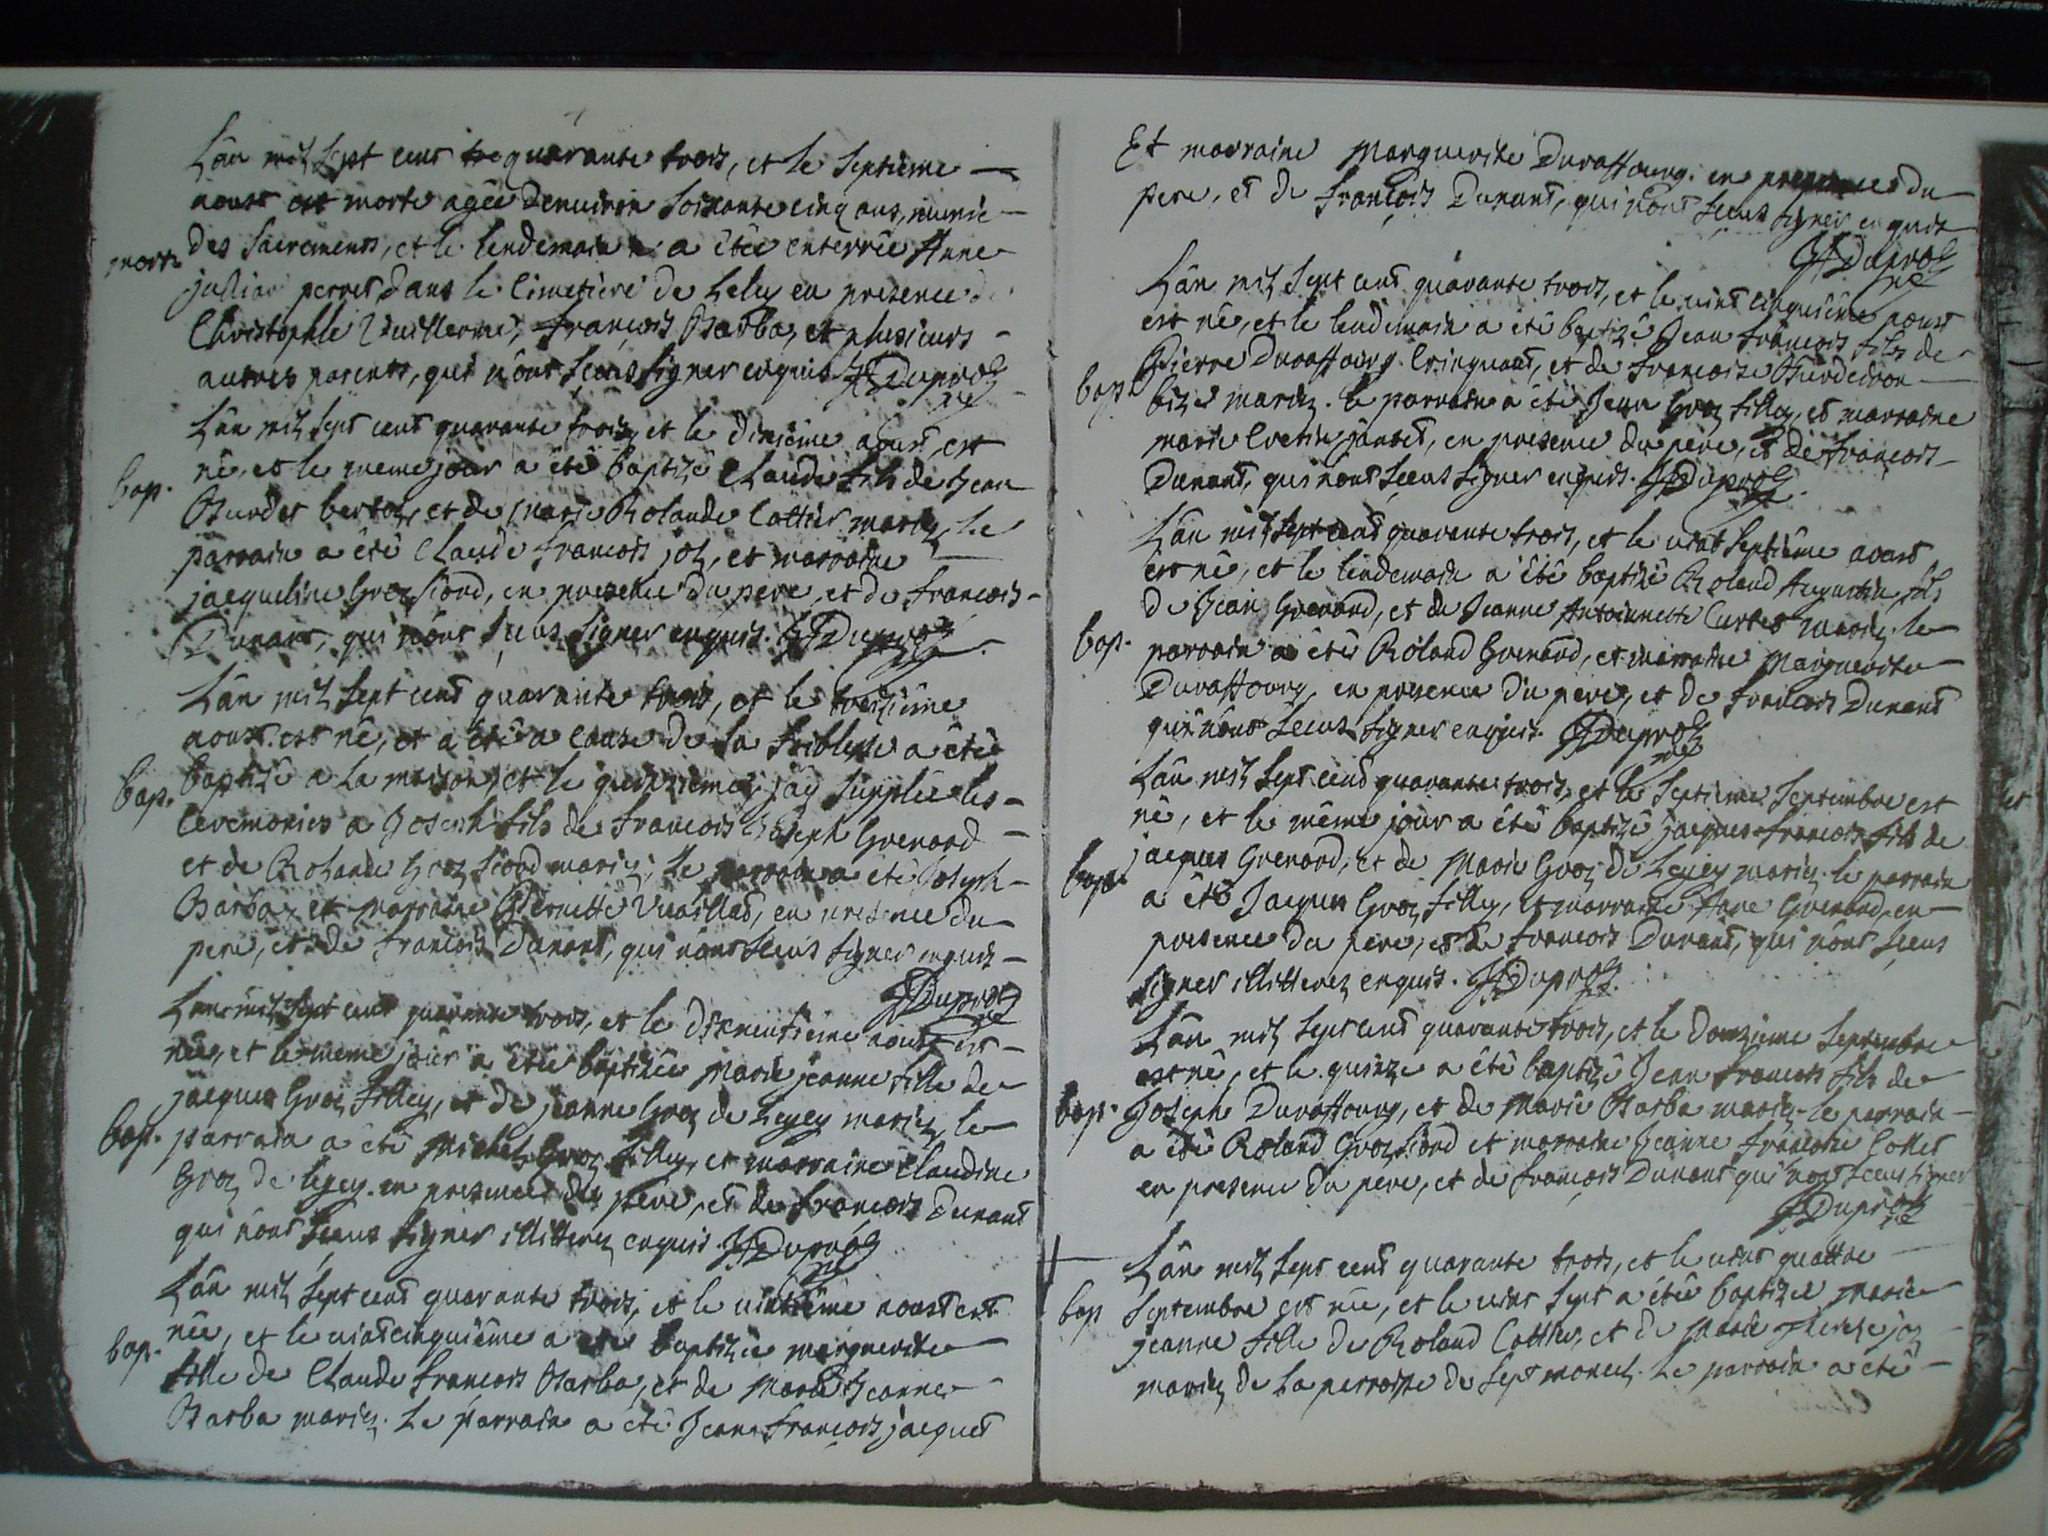 L'ân mil sept cent tre quarante trois, et le septieme
aoust est morte agée denuiron soixante cinq ans, munie
des sacrements, et le lendemain a êtée enterrée Anne
morte
perret dans le Cimetiere de Lelex en presence de
Christophle Vuillerme, françois Barba, et plusieurs
autres parents, qui n'ont sceus signer enquis JFDuproz
L'ân mil sept cent quarante trois, et le dixième aoust, est
né, et le meme jour a êté baptizé Claude fils de Jean
bap.
Burdet et de marie Rolande Cottier mariez, le
parrain a êté Claude françois joz, et marraine
jacqueline Groz fiond, en presence du pere, et de francois
Dunant, qui n'ont sceus signer enquis. JFDuproz
L'ân mil sept cent quarante trois, et le treizième
aoust est né, et a êté a cause de sa foiblesse a êté
baptizé a la maison, et le quinzieme j'ay supplée les
bap.
Ceremonies a Joseph fils de francois Joseph Grenard
et de Rolande Groz fiond mariez, le parrain a êté Joseph
Barba et marraine Pernette Vuaillat, en presence du
pere, et de francois Dunant, qui n'ont sceus signer enquis
JFDuproz
L'an mil sept cent quarante trois, et le dixneufieme aoust est
née, et le meme jour a êtée baptizée Marie jeanne fille de
jacques Groz filley, et de jeanne Groz de Legey mariez, le
bap. parrain a êté Michel Groz filley, et marraine Claudine
Groz de legey en presence du père, et de francois Dunant
qui n'ont sceus signer illitterez enquis. JFDuproz
L'ân mil sept cent quarante trois, et le uintième aoust est
née, et le uintcinquième a êtée baptizée marguerite
bap.
fille de Claude francois Barba, et de Marie Jeanne
Barba mariez. Le parrain a êté Jean francois jacquet
Et marraine Marguerite Duraffourg. en presence du
pere, et de francois Dunant, qui n'ont sceus signer enquis
JFDuproz
L'ân mil sept cent quarante trois, et le uint cinquième aoust
est né, et le lendemain a êté baptizé Jean francois fils de
Pierre Duraffourg Crinquand, et de francoise
bap.
mariez. le parrain a êté Jean Groz filley, et marraine
marie jantet, en presence du père, et de francois
Dunant, qui n'ont sceus signer enquis. JFDuproz
L'ân mil sept cent quarante trois, et le uint septième aoust
est né, et le lendemain a êté baptizé Roland Augustin fils
de Jean Grenard, et de Jeanne Antoinette Curtet mariez. le
bap.
parrain a êté Roland Grenard, et marraine Marguerite
Duraffourg, en presence du pere, et de francois Dunant
qui n'ont sceus signer enquis. JFDuproz
L'ân mil sept cent quarante trois, et le septieme Septembre est
né, et le même jour a êté baptizé jacques francois fils de
jacques Grenard, et de Marie Groz de Legey mariez. le parrain
bap.
a êté Jacques Groz filley, et marraine Anne Grenard, en
presence du pere, et de francois Dunant, qui n'ont sceus
signer illitterez enquis. JFDuproz
L'ân mil sept cent quarante trois, et le douzieme Septembre
est né, et le quinze a êté baptizé Jean francois fils de
bap. Joseph Duraffourg, et de Marie Barba mariez. le parrain
a êté Roland Groz fiond et marraine Jeanne francoise Cottet
en presence du pere, et de françois Dunant qui n'ont sceus signer
JFDuproz
L'ân mil sept cent quarante trois, et le uint quattre
bap Septembre est née, et le uint sept a êtée baptizée Marie
jeanne fille de Roland Cottier, et de Marie Therese joz
mariez de la parroisse de Sept moncel. Le parrain a êté